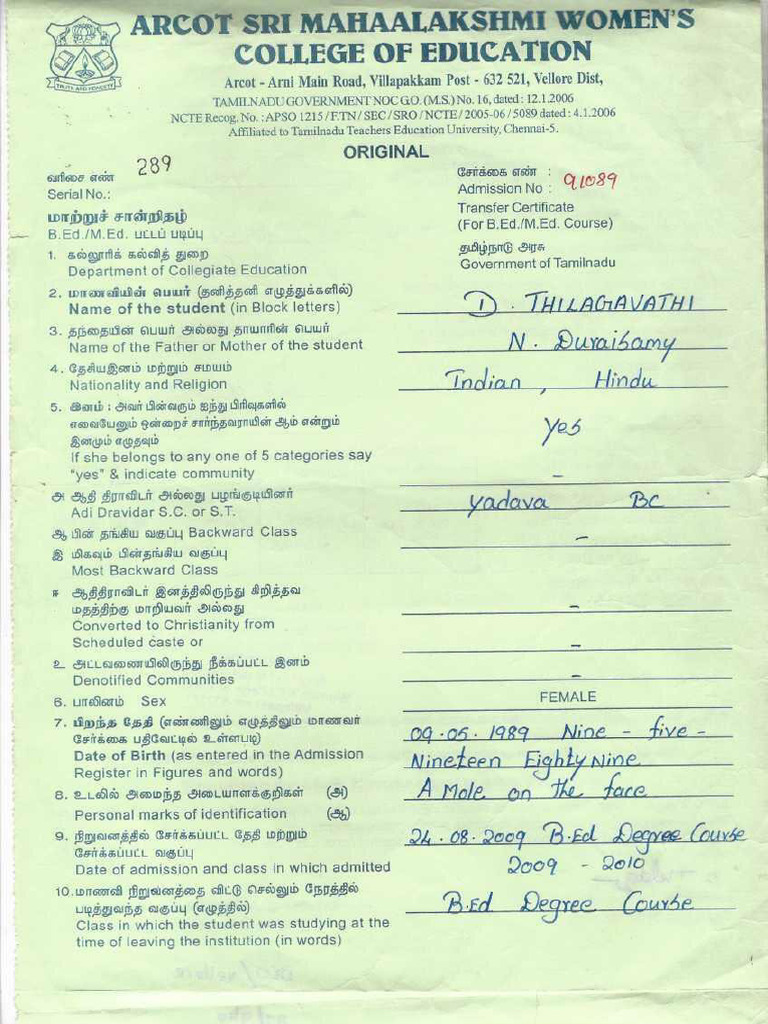 ARCOT SRI MAHAALAKSHMI WOMEN'S
COLLEGE OF EDUCATION
Arcot - Arni Main Road, Villapakkam Post - 632 521, Vellore Dist,
TAMILNADU GOVERNMENT NOC G.O. (M.S.) No. 16, dated : 12.1.2006
NCTE Recog. No. : APSO 1215 / F.TN / SEC / SRO / NCTE / 2005-06 / 5089 dated : 4.1.2006
Affiliated to Tamilnadu Teachers Education University, Chennai-5.
TRUTH AND HONESTY
ORIGINAL
வரிசை எண் 289
Serial No.:
சேர்க்கை எண் :
Admission No : 91089
மாற்றுச் சான்றிதழ்
Transfer Certificate
B.Ed./M.Ed. பட்டப் படிப்பு
(For B.Ed./M.Ed. Course)
1. கல்லூரிக் கல்வித் துறை
தமிழ்நாடு அரசு
Department of Collegiate Education
Government of Tamilnadu
2. மாணவியின் பெயர் (தனித்தனி எழுத்துக்களில்)
Name of the student (in Block letters) D. THILAGAVATHI
3. தந்தையின் பெயர் அல்லது தாயாரின் பெயர்
Name of the Father or Mother of the student N. Duraisamy
4. தேசியஇனம் மற்றும் சமயம்
Nationality and Religion Indian, Hindu
5. இனம் : அவர் பின்வரும் ஐந்து பிரிவுகளில்
எவையேனும் ஒன்றைச் சார்ந்தவராயின் ஆம் என்றும்
இனமும் எழுதவும் Yes
If she belongs to any one of 5 categories say
"yes" & indicate community -
அ ஆதி திராவிடர் அல்லது பழங்குடியினர்
Adi Dravidar S.C. or S.T. Yadava BC
ஆ பின் தங்கிய வகுப்பு Backward Class -
இ மிகவும் பின்தங்கிய வகுப்பு
Most Backward Class
ஈ ஆதிதிராவிடர் இனத்திலிருந்து கிறித்தவ
மதத்திற்கு மாறியவர் அல்லது -
Converted to Christianity from
Scheduled caste or -
உ அட்டவணையிலிருந்து நீக்கப்பட்ட இனம்
Denotified Communities -
6. பாலினம் Sex FEMALE
7. பிறந்த தேதி (எண்ணிலும் எழுத்திலும் மாணவர்
சேர்க்கை பதிவேட்டில் உள்ளபடி) 09.05.1989 Nine - five -
Date of Birth (as entered in the Admission
Register in Figures and words) Nineteen Eighty Nine
8. உடலில் அமைந்த அடையாளக்குறிகள் (அ) A Mole on the face
Personal marks of identification (ஆ)
9. நிறுவனத்தில் சேர்க்கப்பட்ட தேதி மற்றும்
சேர்க்கப்பட்ட வகுப்பு 24.08.2009 B.Ed Degree Course
Date of admission and class in which admitted 2009 - 2010
10. மாணவி நிறுவனத்தை விட்டு செல்லும் நேரத்தில்
படித்துவந்த வகுப்பு (எழுத்தில்) B.Ed Degree Course
Class in which the student was studying at the
time of leaving the institution (in words)